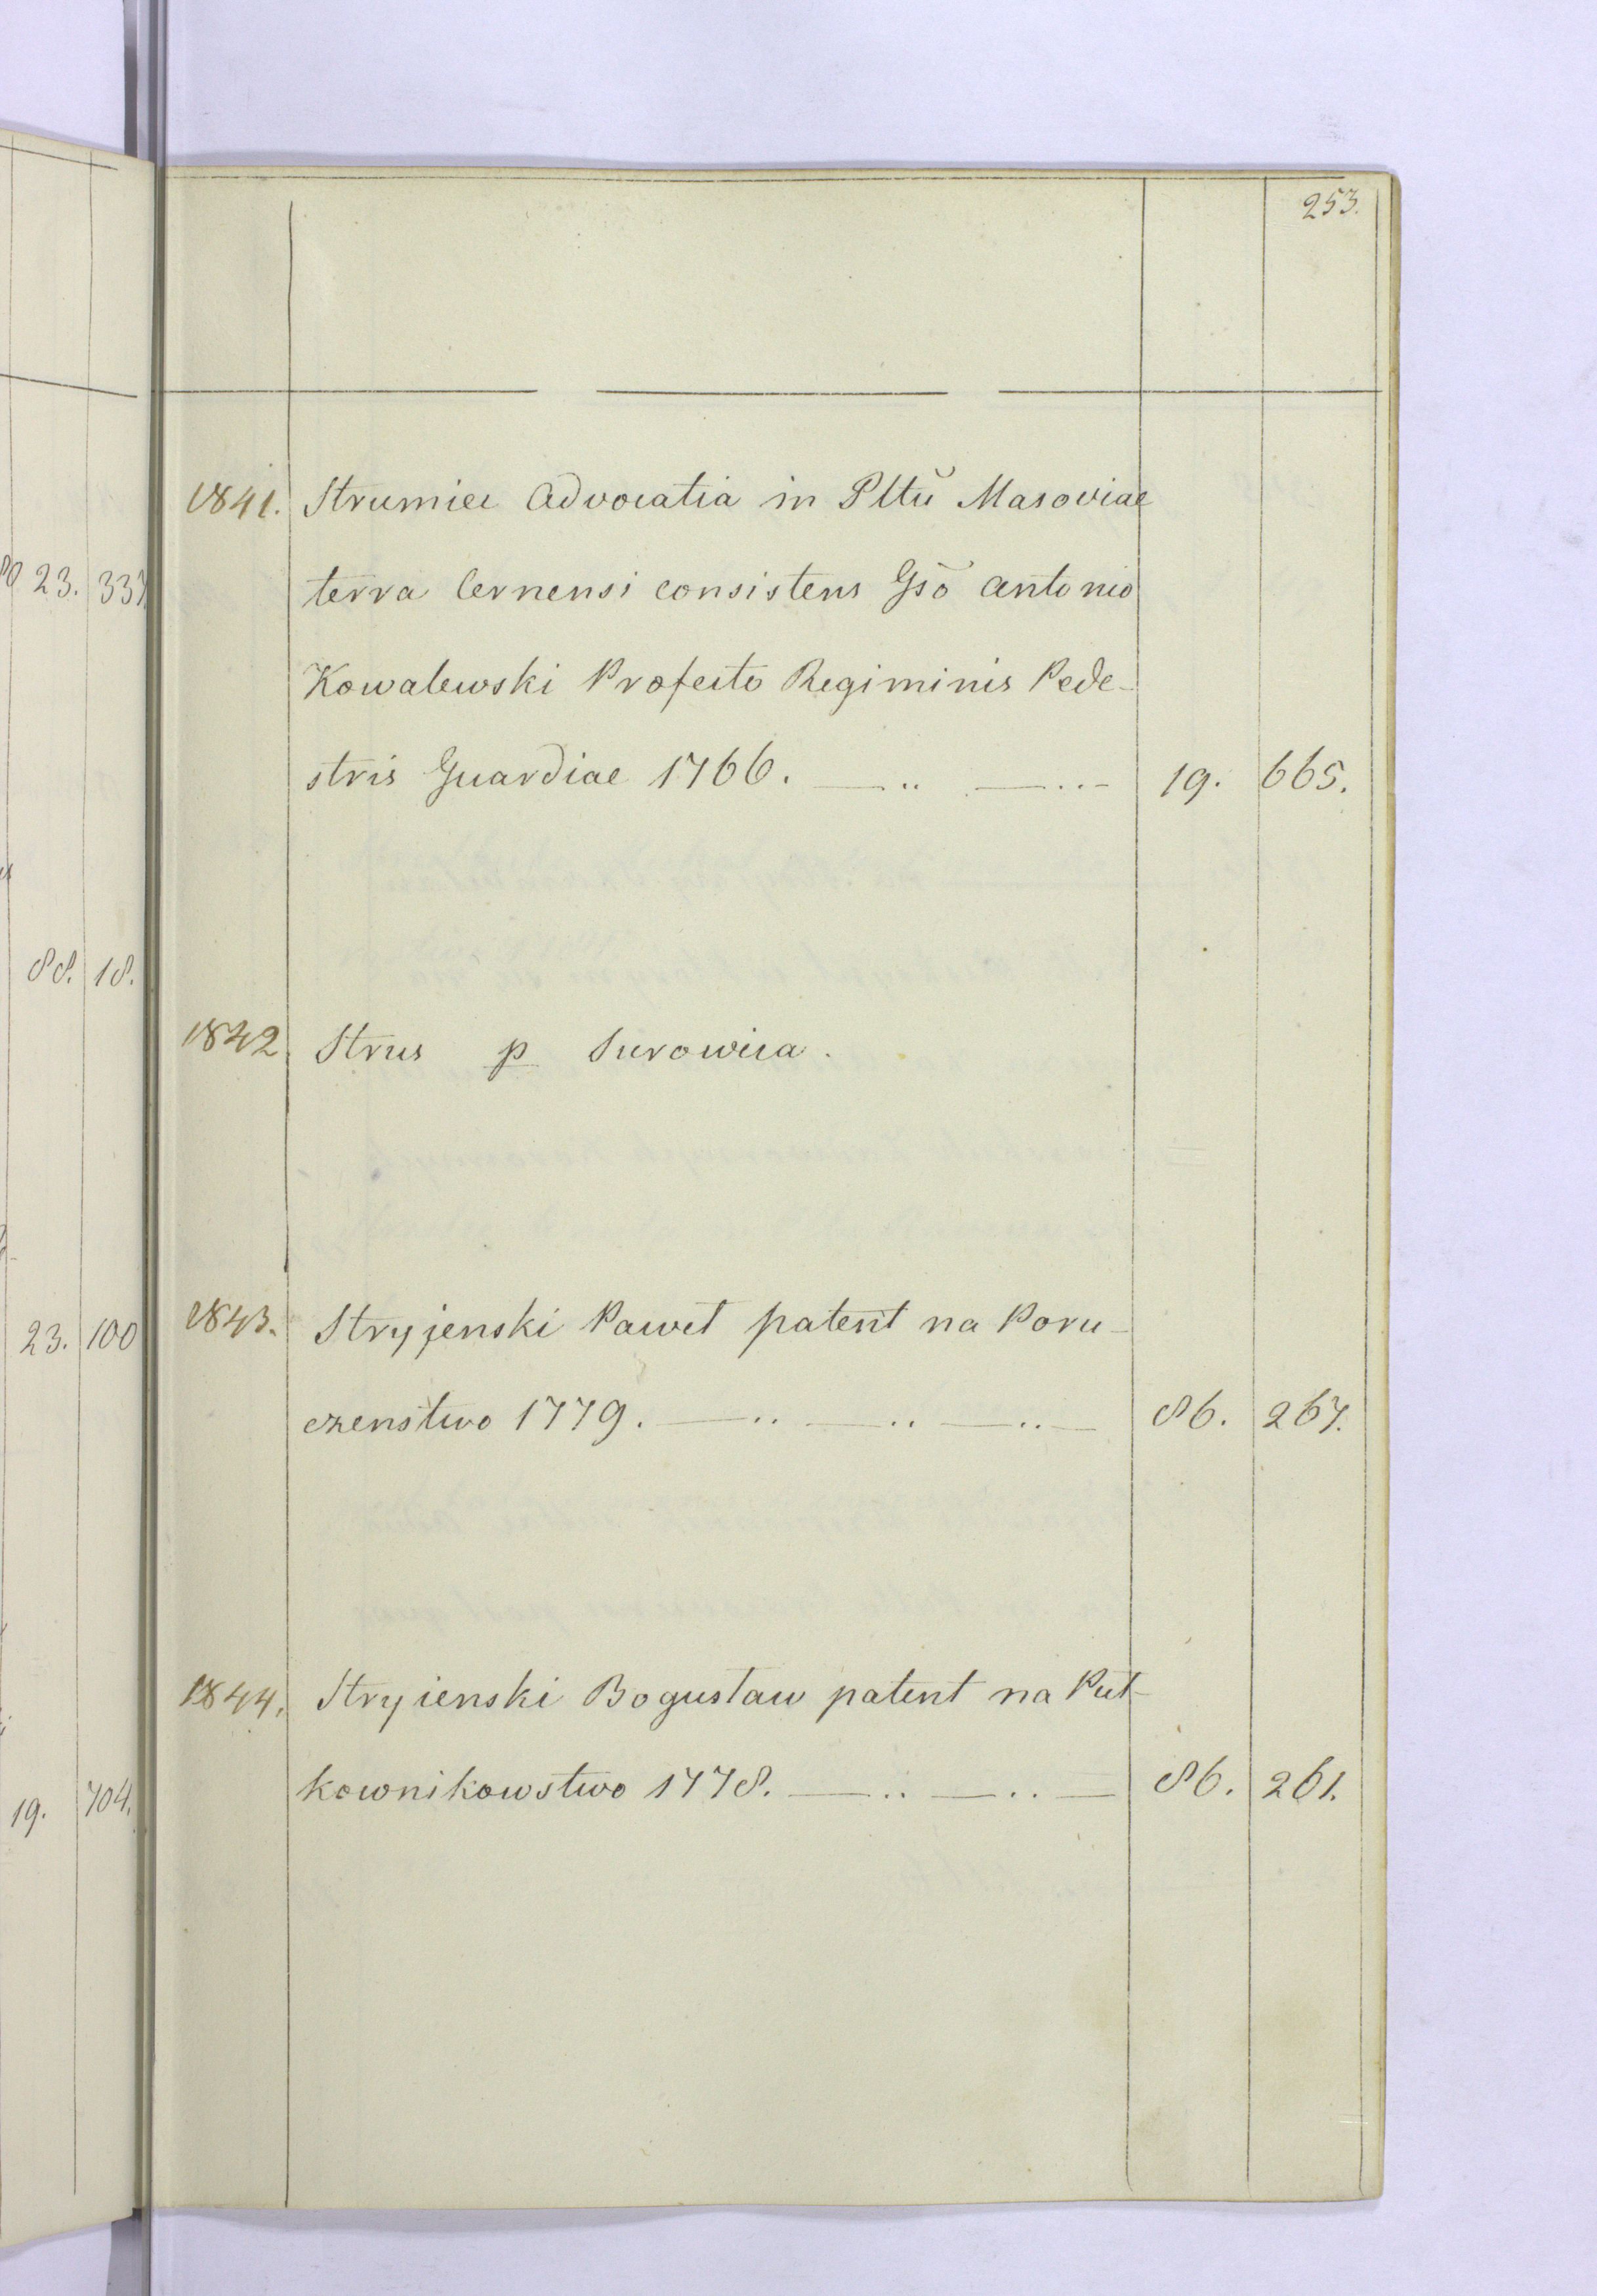 253.
1841. Strumiec Advocatia in Plttu Masoviae
terra Cernensi consistens Gso Antonio
Kowalewski Profecto Regiminis Pede-
stris Guardiae 1766. 19. 665.
1842. Strus p Surowica.
1843. Stryjenski Paweł patent na Poru-
czenstwo 1779. 86. 267.
1844. Stryienski Bogusław patent na Puł-
kownikowstwo 1778. 86. 261.
23. 337.
88. 18.
23. 100
19. 704.